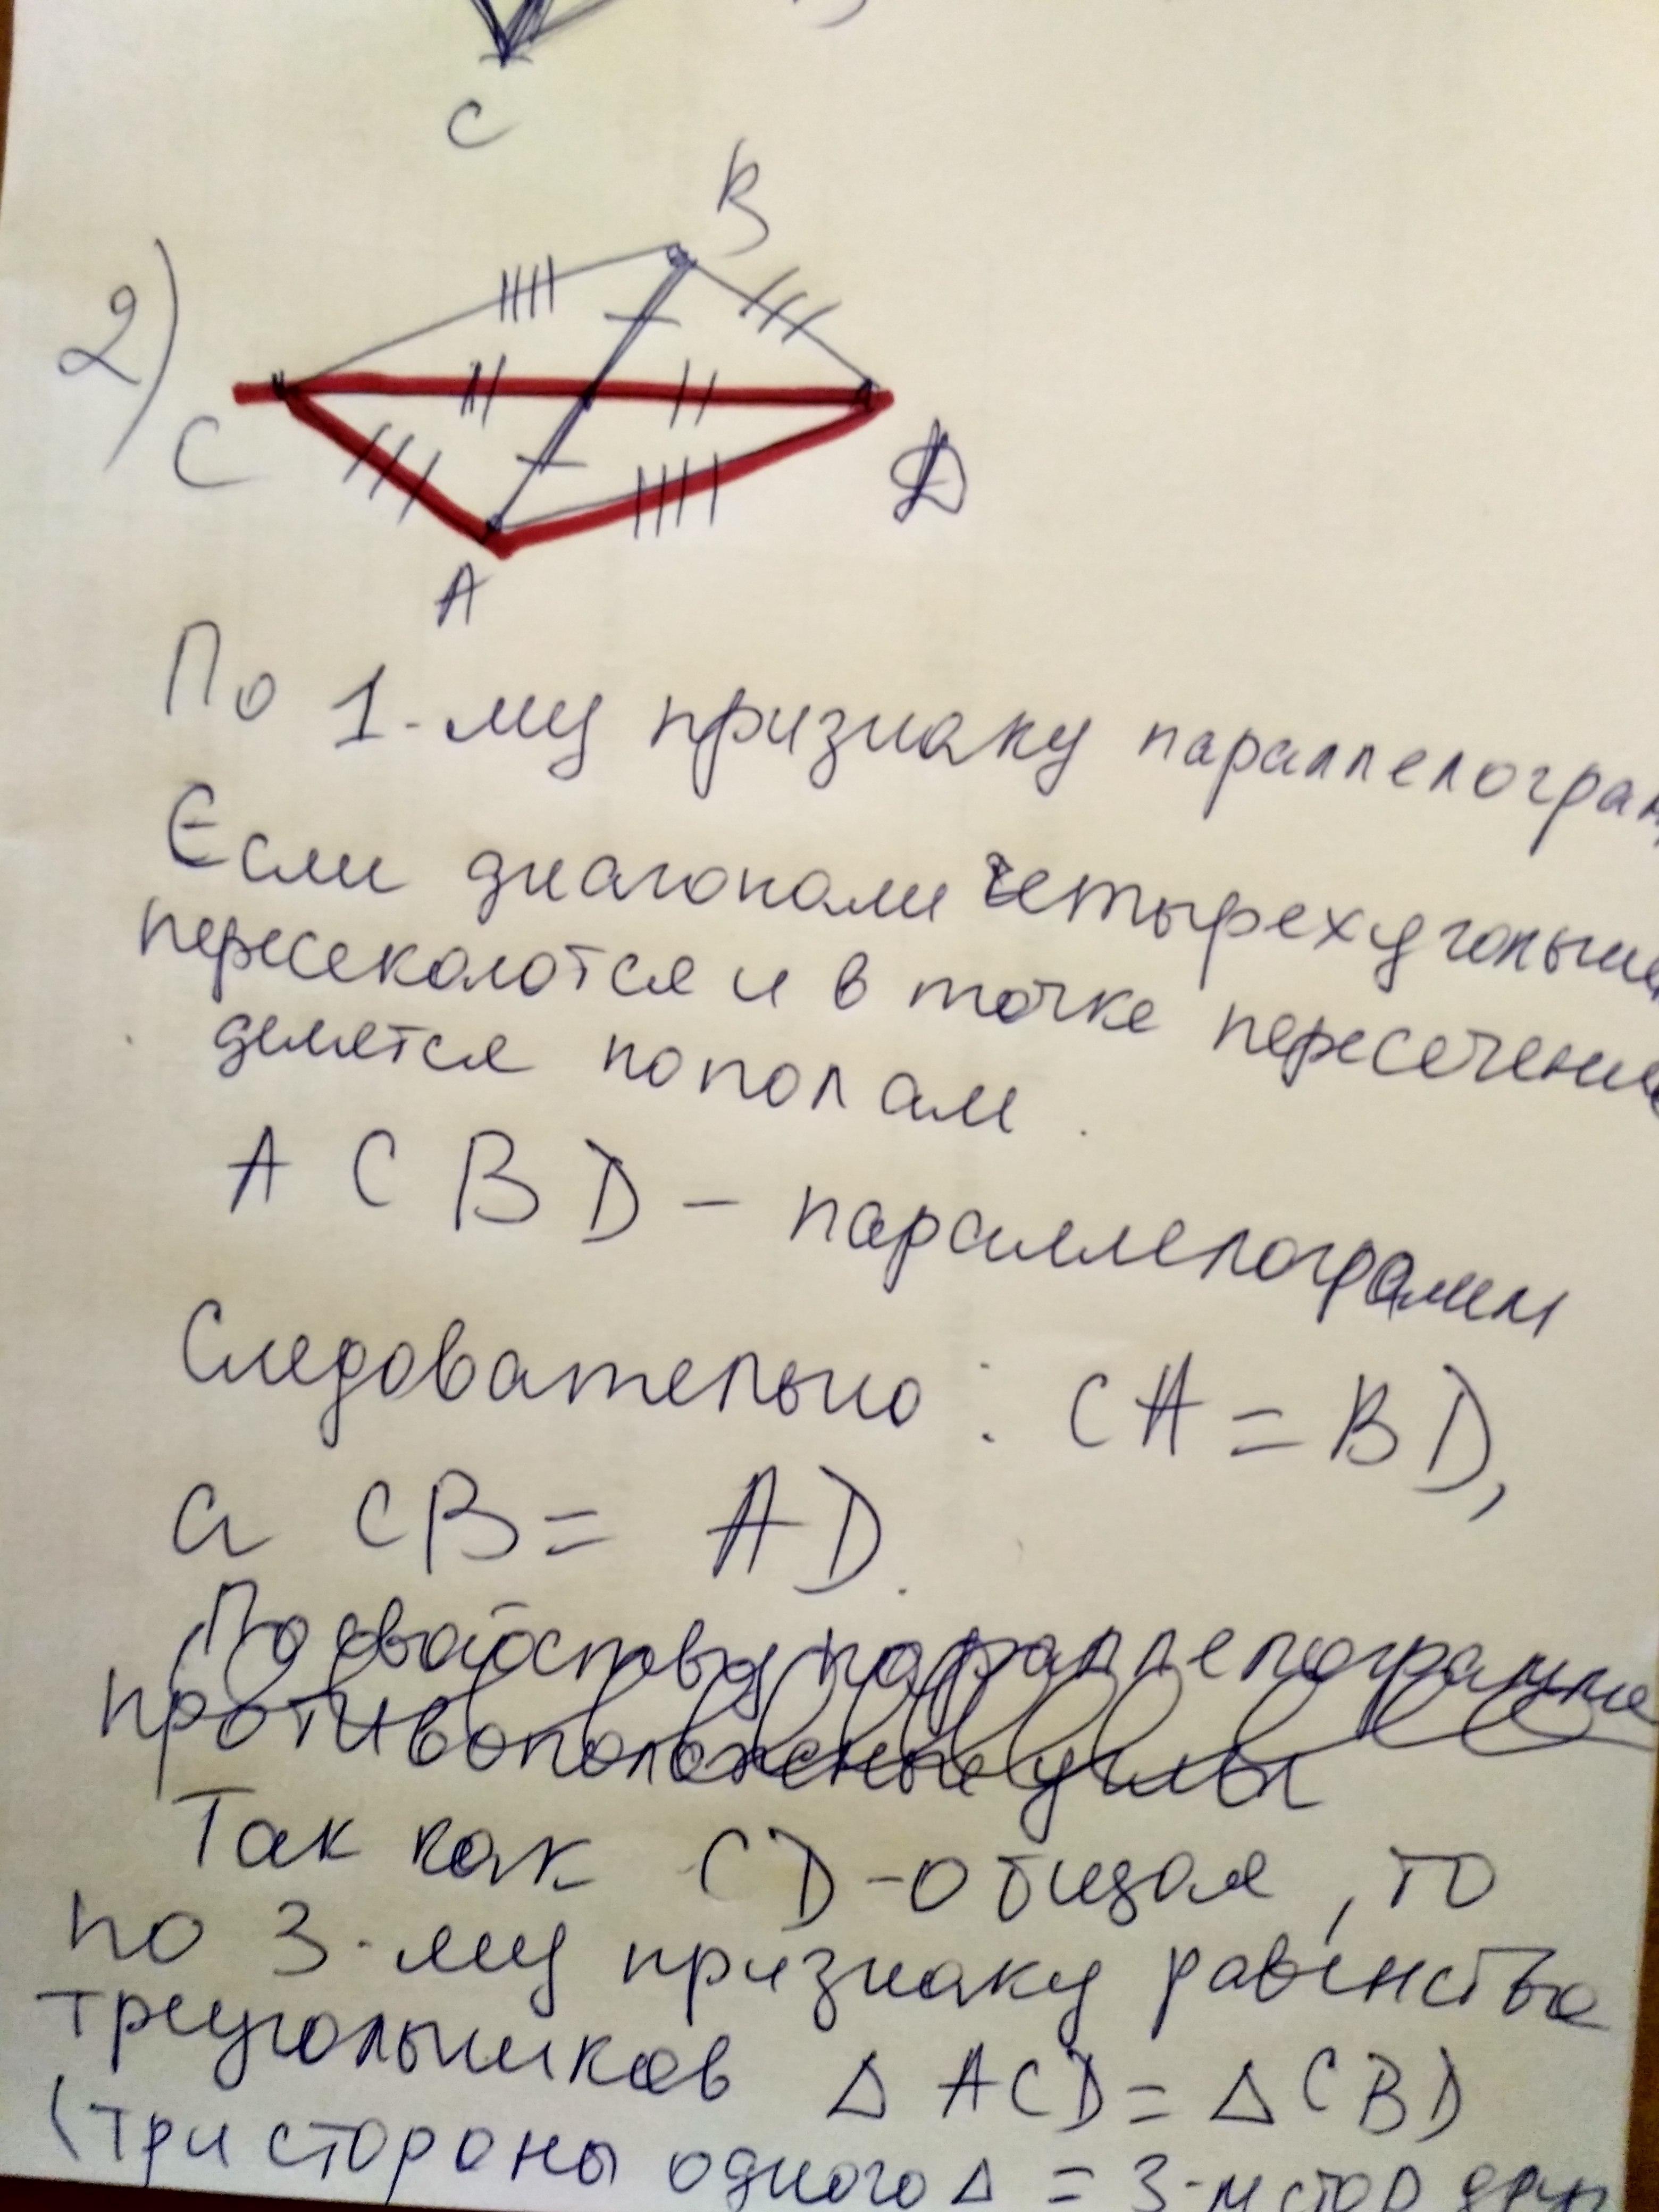 C
2)
B
C
D
A
По 1-му признаку параллелограм
Если диагонали четырехугольник
пересекаются и в точке пересечения
делятся пополам.
A C B D - параллелограмм
Следовательно: CA = BD,
а CB = AD.
По свойству параллелограмма
противоположные углы
Так как CD - общая, то
по 3-му признаку равенства
треугольников Δ ACD = Δ CBD
(три стороны одного Δ = 3-м стор друг